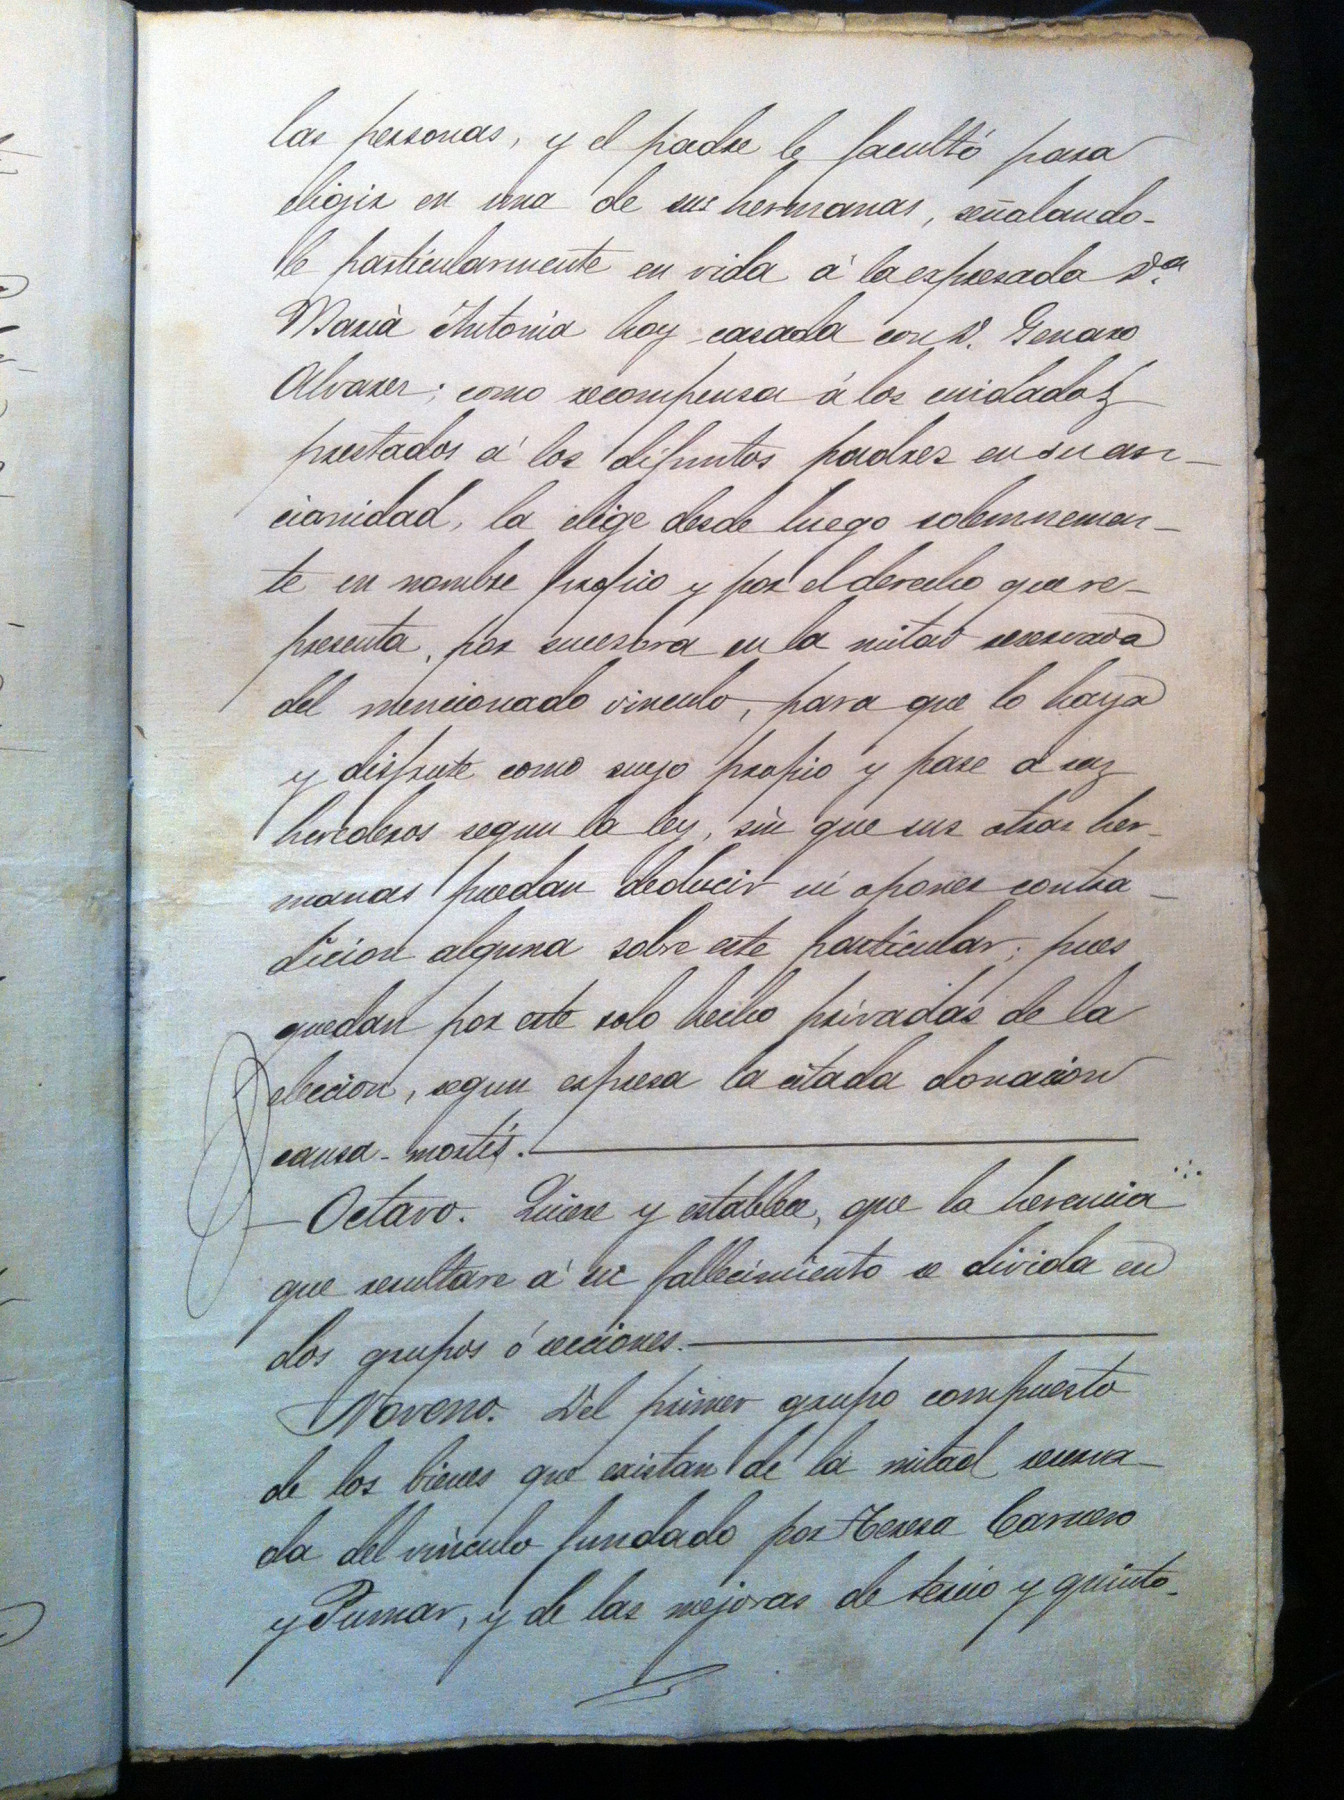 las personas, y el padre le facultó para
eligir en una de sus hermanas, señalando-
le particularmente en vida á la expresada D.ª
Mariá Antonia hoy casada con D. Genaro
Alvarez; como recompensa á los cuidados
prestados á los difuntos padres en su an-
cianidad, la elige desde luego solemnemen-
te en nombre propio y por el derecho que re-
presenta, por sucesora en la mitad reservada
del mencionado vinculo, para que lo haya
y disfrute como suyo propio y pase a sus
herederos segun la ley, sin que sus otras her-
manas puedan deducir ni oponer contra-
dicion alguna sobre este particular; pues
quedan por este solo hecho privadas de la
eleccion, segun expresa la citada donacion
causa-mortis.
Octavo. Quiere y establece, que la herencia
que resultare á su fallecimiento se divida en
dos grupos ó secciones.
Noveno. Del primer grupo compuesto
de los bienes que existan de la mitad reserva-
da del vinculo fundado por Teresa Carnero
y Pumar, y de las mejoras de tercio y quinto-